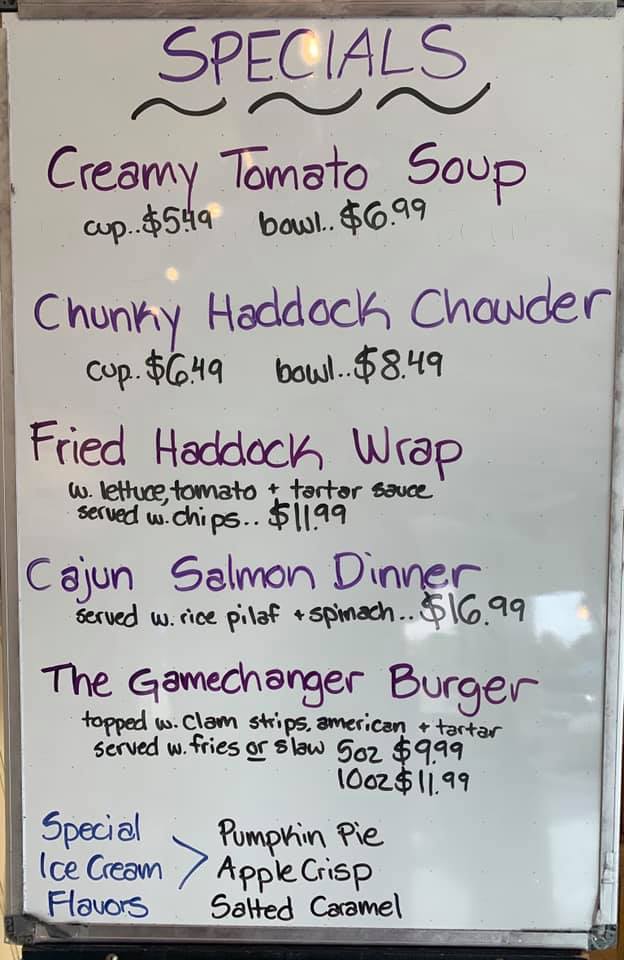 SPECIALS
Creamy Tomato Soup
cup..$5.49 bowl..$6.99
Chunky Haddock Chowder
cup..$6.49 bowl..$8.49
Fried Haddock Wrap
w. lettuce, tomato + tartar sauce
served w. chips.. $11.99
Cajun Salmon Dinner
served w. rice pilaf + spinach..$16.99
The Gamechanger Burger
topped w. clam strips, american + tartar
served w. fries or slaw 5oz $9.99
10oz $11.99
Special > Pumpkin Pie
Ice Cream Apple Crisp
Flavors Salted Caramel